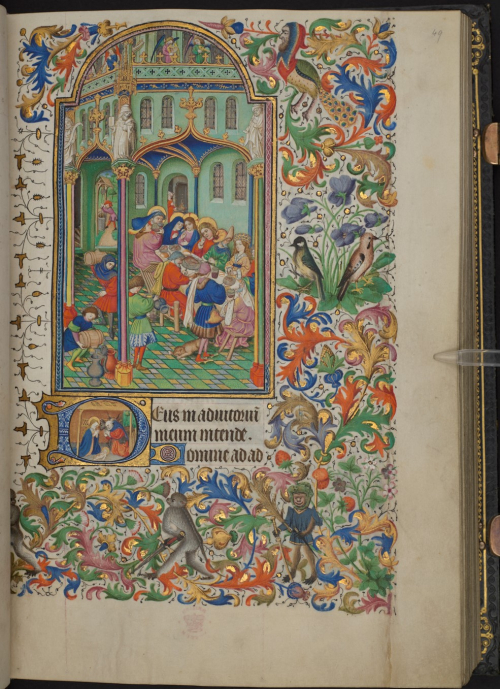 49
Deus in adiutoriu̅
meum intende.
Domine ad ad